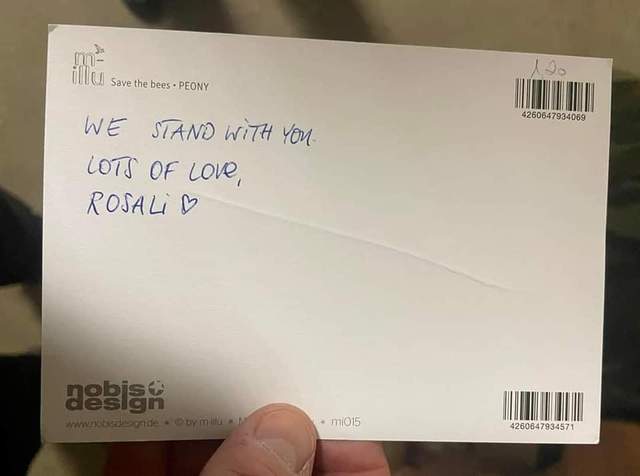 m-
illu
Save the bees • PEONY
1,20
4260647934069
WE STAND WITH YOU.
LOTS OF LOVE,
ROSALI ♡
nobis
design
www.nobisdesign.de • © by m-illu • mi015
4260647934571